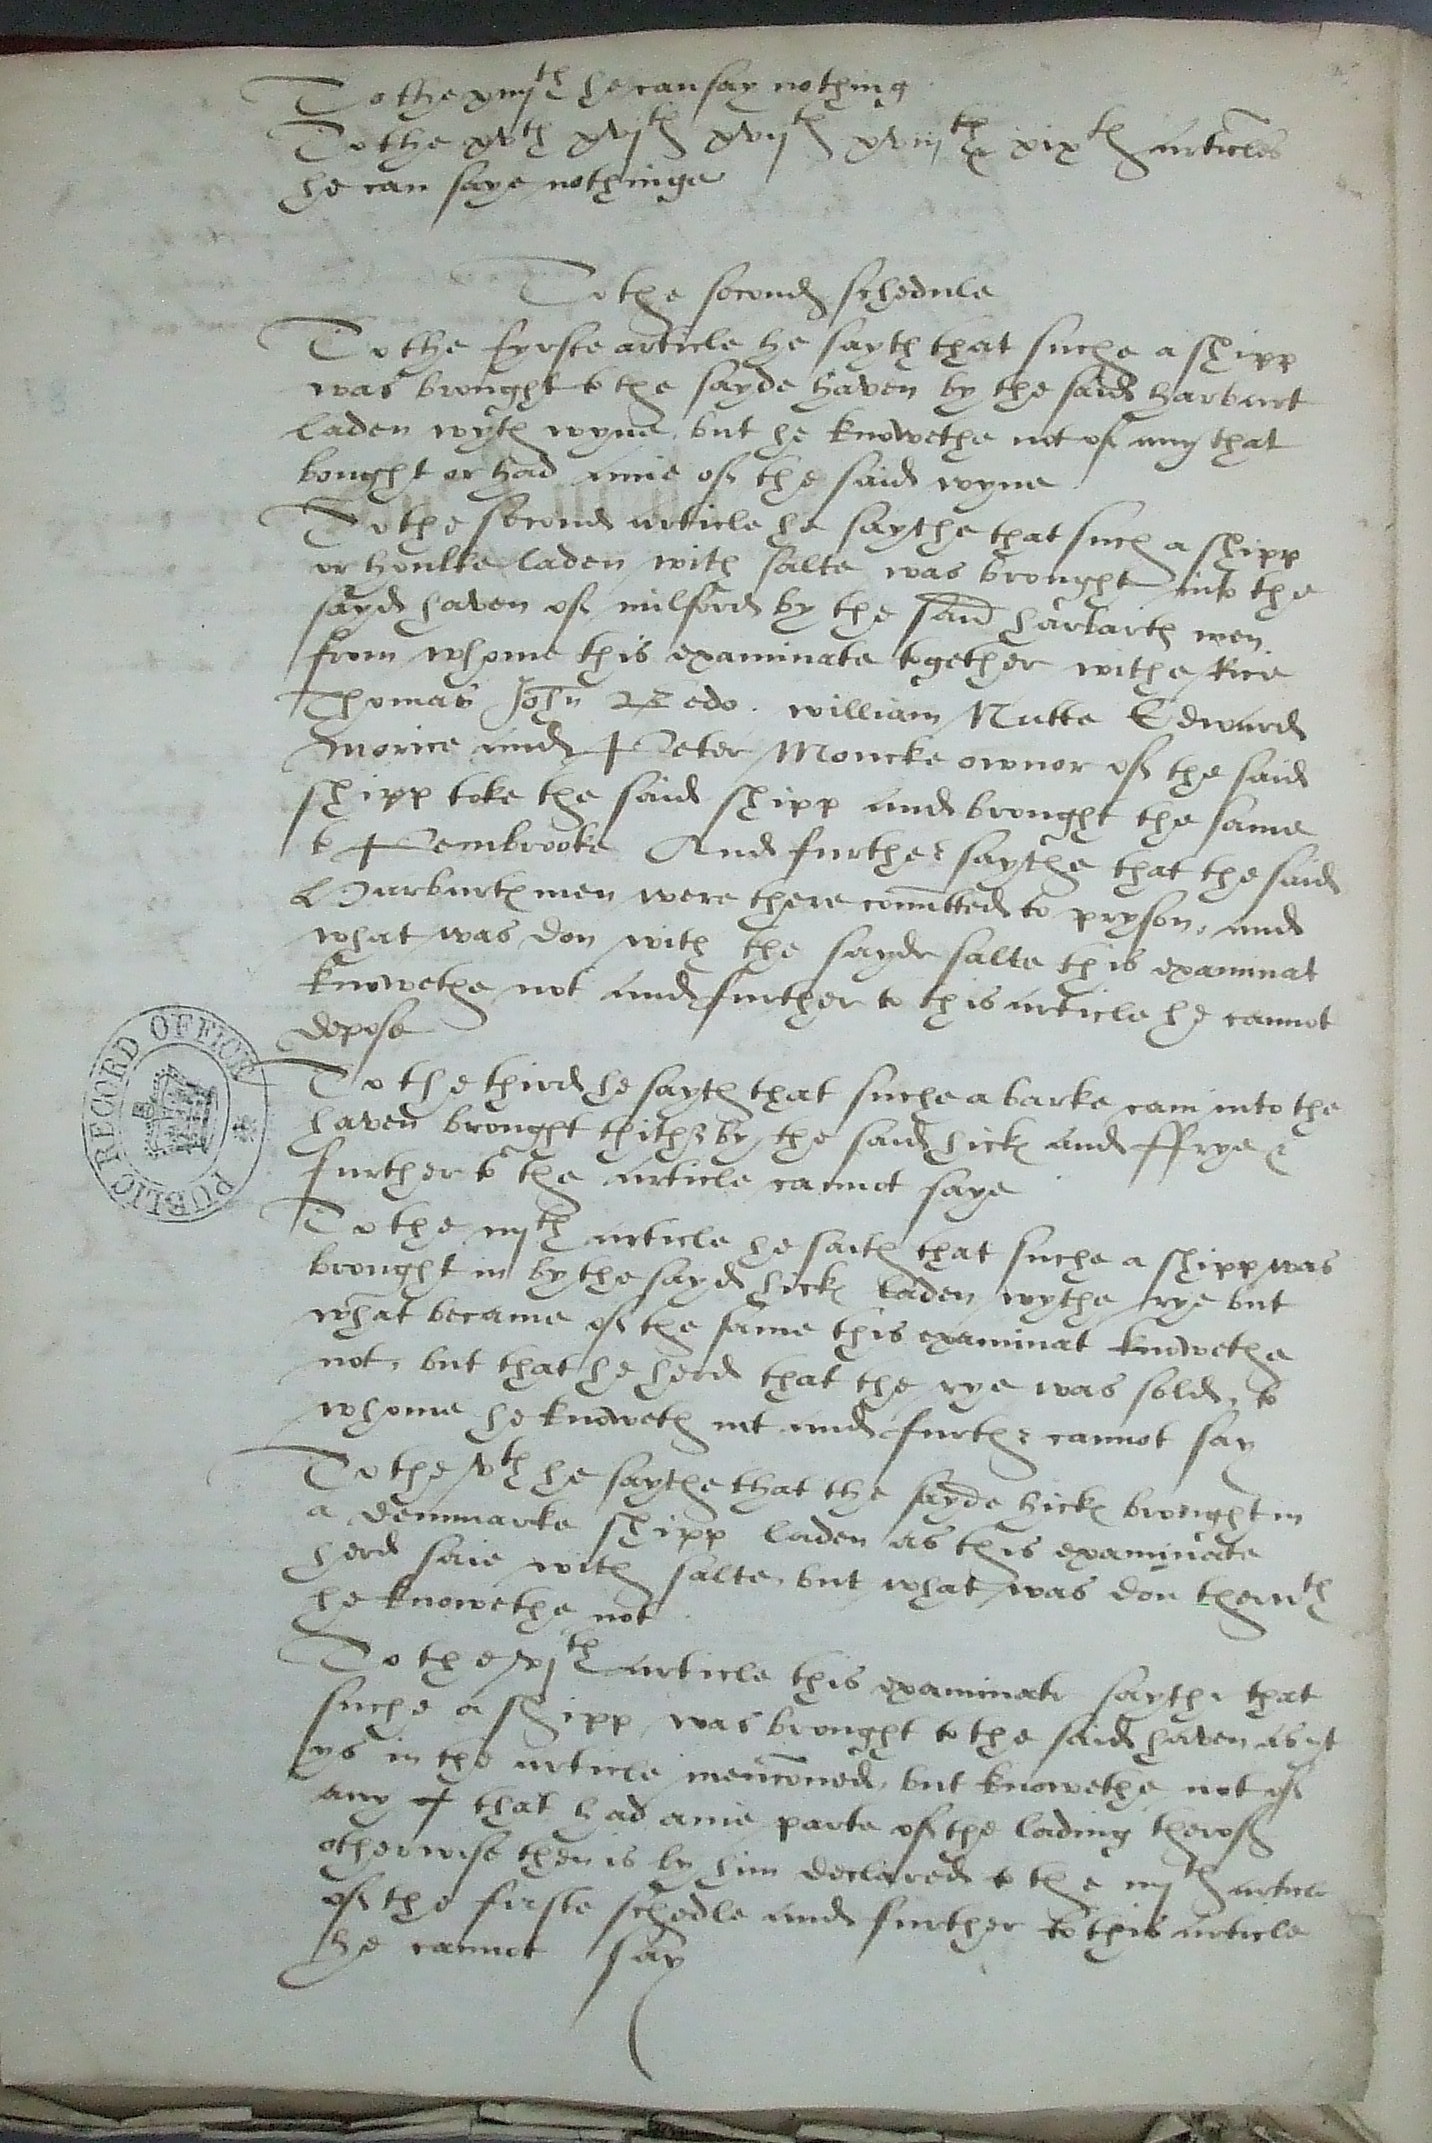 To the xiiijth he can say nothing
To the xvth xvjth xvijth xviijth & xixth articles
he can saye nothinge
To the second schedule
To the fyrste article he sayth that suche a shipp
was brought to the sayde haven by the said harburt
laden wyth wyne, but he knowethe not of any that
bought or had anie of the said wyne
To the second article he saythe that such a shipp
or houlke laden with salte was brought into the
sayd haven of milford by the said harbarth men
from whome this examinate together withe Rice
Thomas John Redo. william Nutte Edward
Morice and Peter Moncke ownor of the said
shipp toke the said shipp and brought the same
to Pembrooke And further saythe that the said
Harburth men were there comitted to pryson, and
what was don with the sayde salte this examinat
knowethe not and further to this article he cannot
depose
To the third he sayth that suche a barke cam into the
haven brought thither by the said hick and ffrye &
further to the article cannot saye
To the iiijth article he saith that suche a shipp was
brought in by the sayd hick laden wythe rye but
what became of the same this examinat knowethe
not, but that he herd that the rye was sold, to
whome he knoweth not and further cannot say
To the vth he saythe that the sayde hick brought in
a denmarke shipp laden as this examinate
herd saie with salte, but what was don therwth
he knowethe not
To the vjth article this examinate sayth that
suche a shipp was brought to the said haven as yt
ys in the article mencioned, but knowethe not of
any of that had anie parte of the lading therof
otherwise then is by him declared to the iiijth article
of the firste schedle and further to this article
he cannot say
PUBLIC RECORD OFFICE